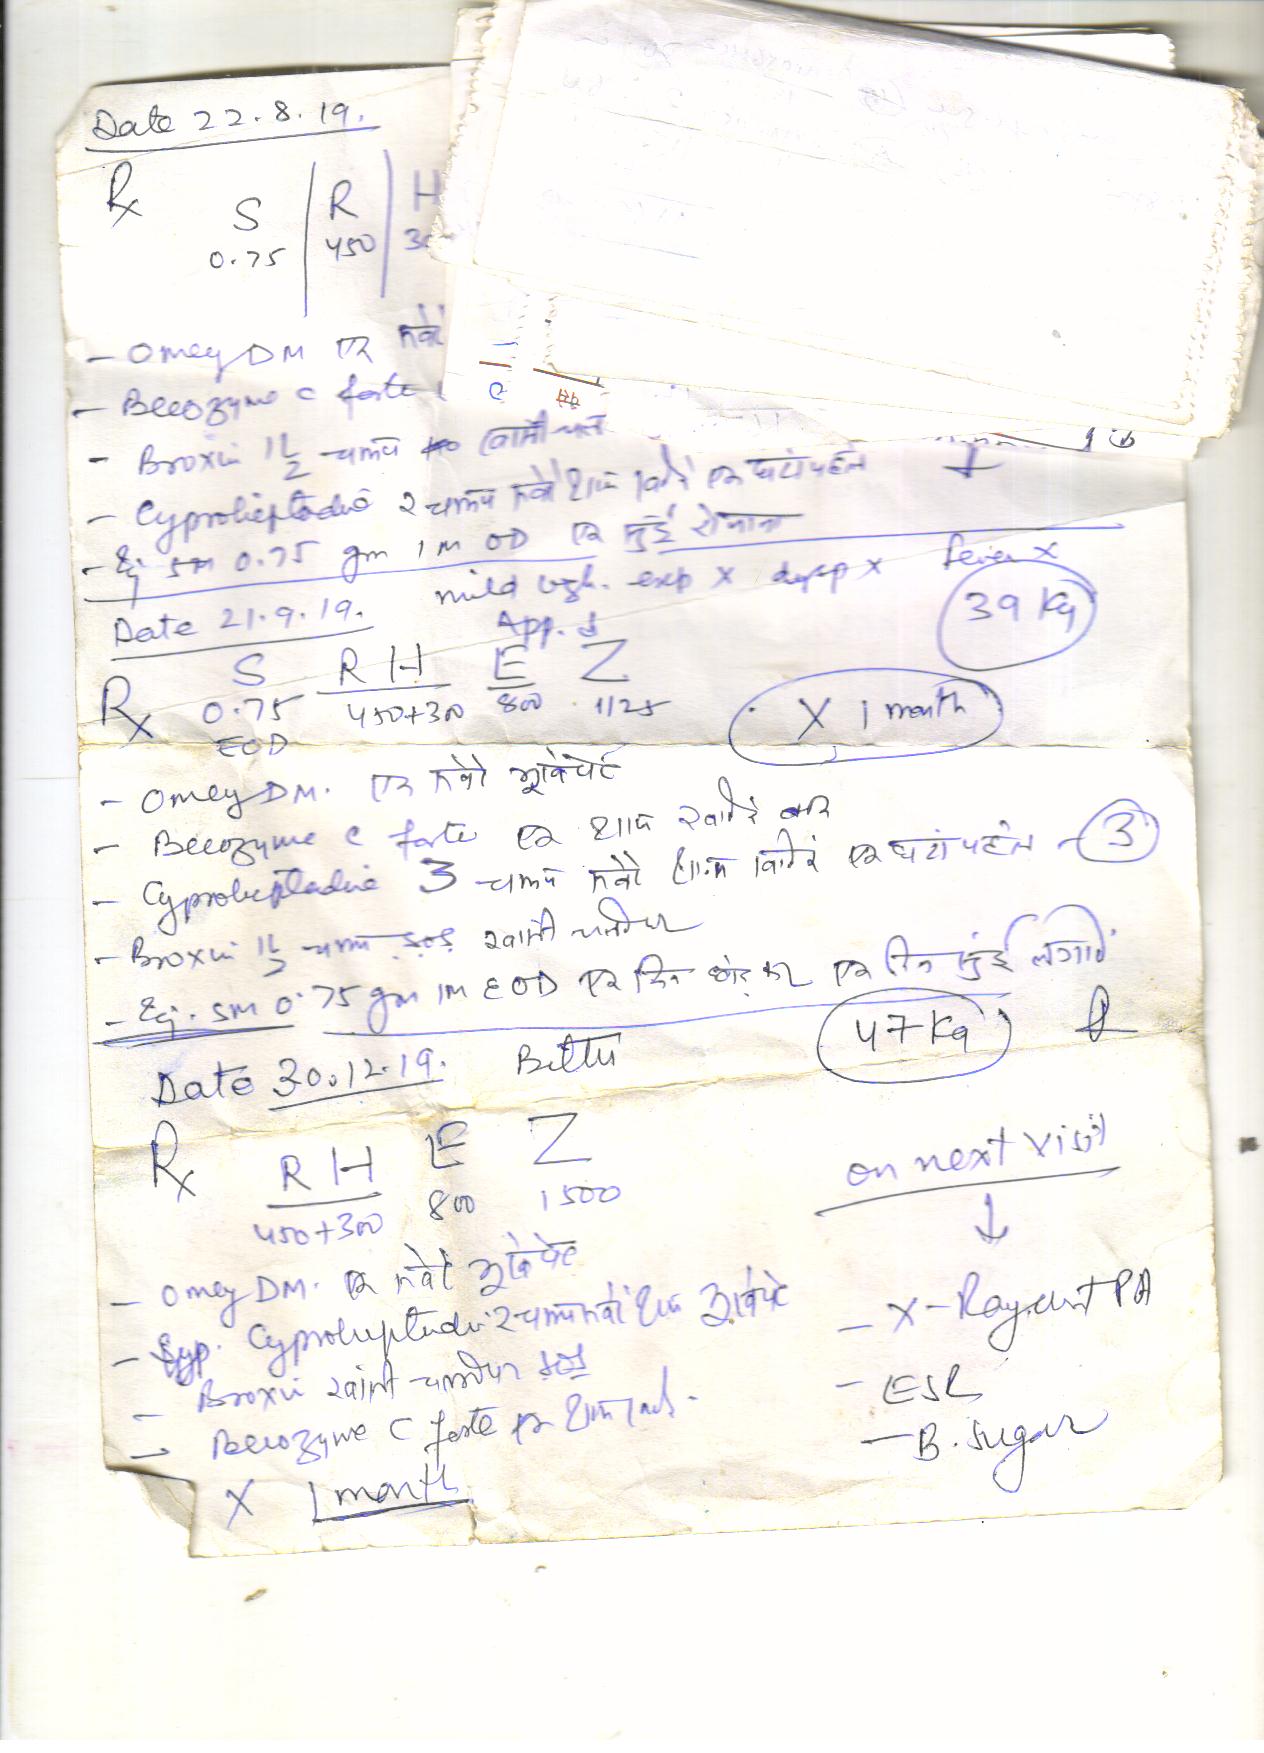 Date 22.8.19.
Rx S R H
0.75 450
- Omey DM एक सवेरे
- Becozyme C forte
- Broxin 1½ चम्मच खांसी चले
- Cyproheptadine 2 चम्मच सवेरे शाम एक घंटा पहले
- Inj SM 0.75 gm IM OD एक सुई रोजाना
Date 21.9.19. mild cgh. exp x dysp x fever x
App. ↓ 39 Kg
Rx S R H E Z
0.75 450+300 800 1125 X 1 month
EOD
- Omey DM. एक सवेरे भूखे पेट
- Becozyme C forte एक शाम खाने बाद
- Cyproheptadine 3 चम्मच सवेरे शाम एक घंटा पहले - 3
- Broxin 1½ चम्मच SOS खांसी चलने पर
- Inj. SM 0.75 gm IM EOD एक दिन छोड़ कर एक दिन सुई लगावें
Date 30.12.19. Bittu 47 Kg
Rx R H E Z
450+300 800 1500
on next visit
↓
- Omey DM. एक सवेरे भूखे पेट
- Syp. Cyproheptadine 2 चम्मच सवेरे शाम भूखे पेट
- X-Ray chest PA
- Broxin खांसी चलने पर SOS
- ESR
- Becozyme C forte एक शाम
- B. Sugar
X 1 month